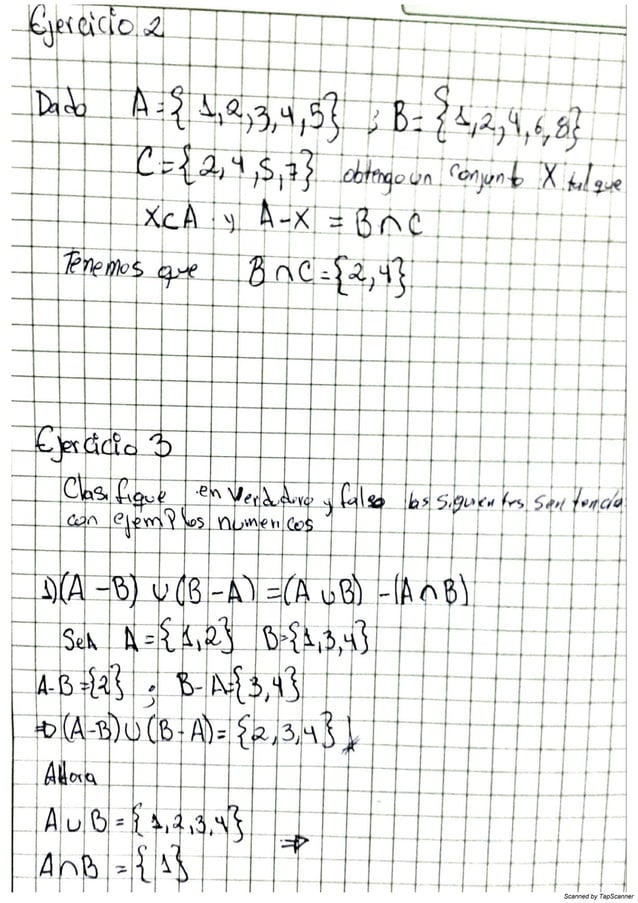 Ejercicio 2
Dado A={1,2,3,4,5} ; B={1,2,4,6,8}
C={2,4,5,7} obtengo un conjunto X tal que
X⊂A y A-X = B∩C
Tenemos que B∩C={2,4}
Ejercicio 3
Clasifique en Verdadero y falso las siguientes sentencia
con ejemplos numericos
1)(A-B)∪(B-A)=(A∪B)-(A∩B)
Sea A={1,2} B={1,3,4}
A-B={2} ; B-A={3,4}
⇒(A-B)∪(B-A)={2,3,4}
Ahora
A∪B={1,2,3,4} ⇒
A∩B={1}
Scanned by TapScanner